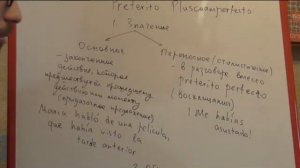 Preterito Pluscuamperfecto
1. Значение
Основное
- законченное
действие, которое
предшествует прошедшему
действию или моменту
(придаточное предложение)
María habló de una película,
que había visto la
tarde anterior
Переносное (стилистическое)
- в разговоре вместо
preterito perfecto
(восклицания)
¡ Me habías
asustado!